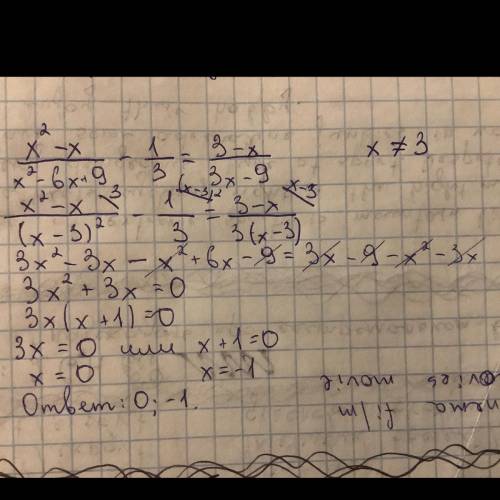 x² - x / x² - 6x + 9 - 1/3 = 3 - x / 3x - 9    x ≠ 3
x² - x \3 / (x - 3)² - 1 \(x-3)² / 3 = 3 - x \x-3 / 3(x - 3)
3x² - 3x - x² + 6x - 9 = 3x - 9 - x² - 3x
3x² + 3x = 0
3x(x + 1) = 0
3x = 0 или x + 1 = 0
x = 0    x = -1
Ответ: 0; -1.
movie
film